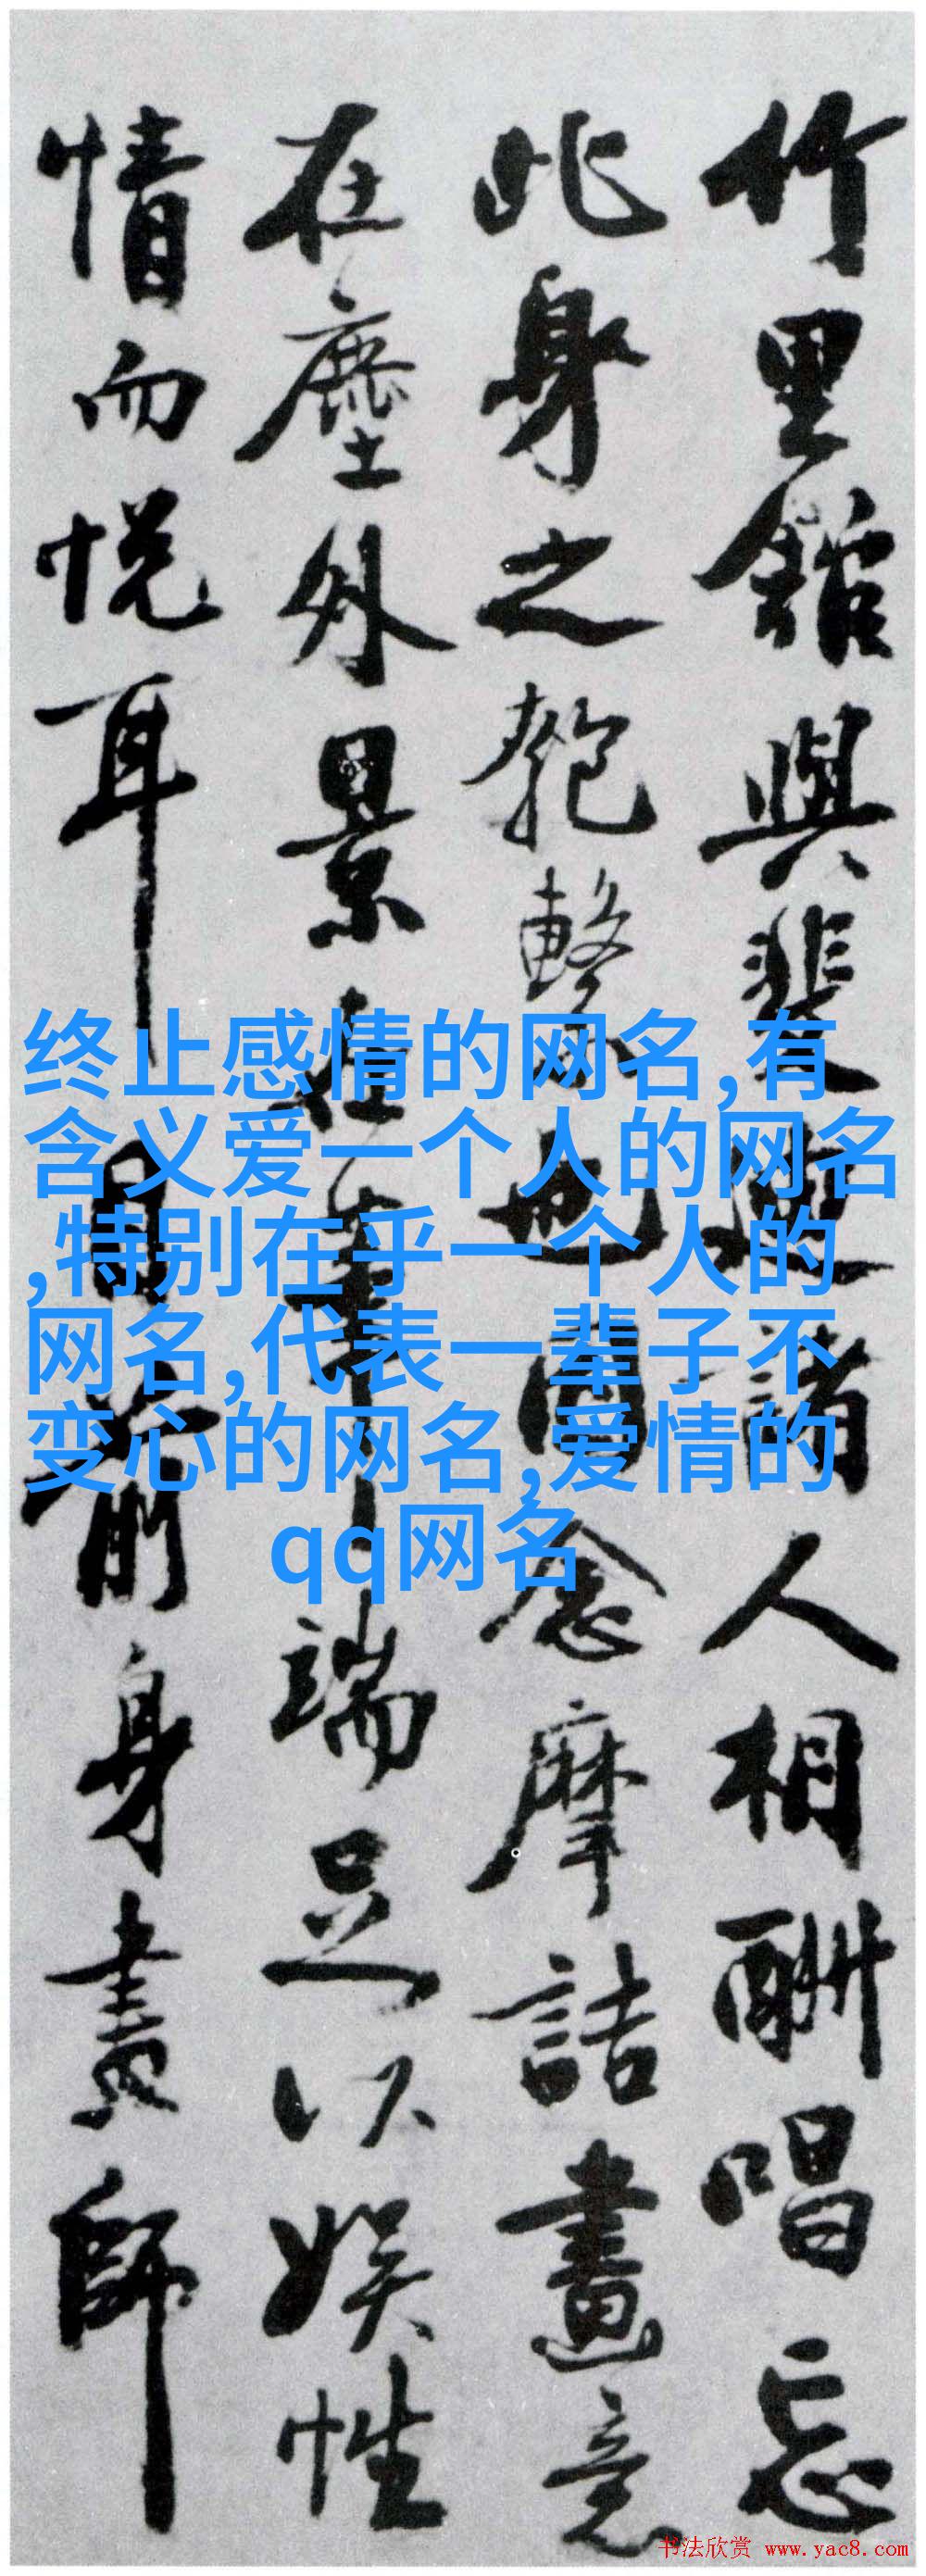 竹里館與裴迪諸人相酬唱忘
此身之匏繫也因念摩詰畫意
在塵外景在筆端足以娱性
情而悦耳目前身畫師
终止感情的网名,有
含义爱一个人的网名
,特别在乎一个人的
网名,代表一辈子不
变心的网名,爱情的
qq网名
书法欣赏 www.yac8.com